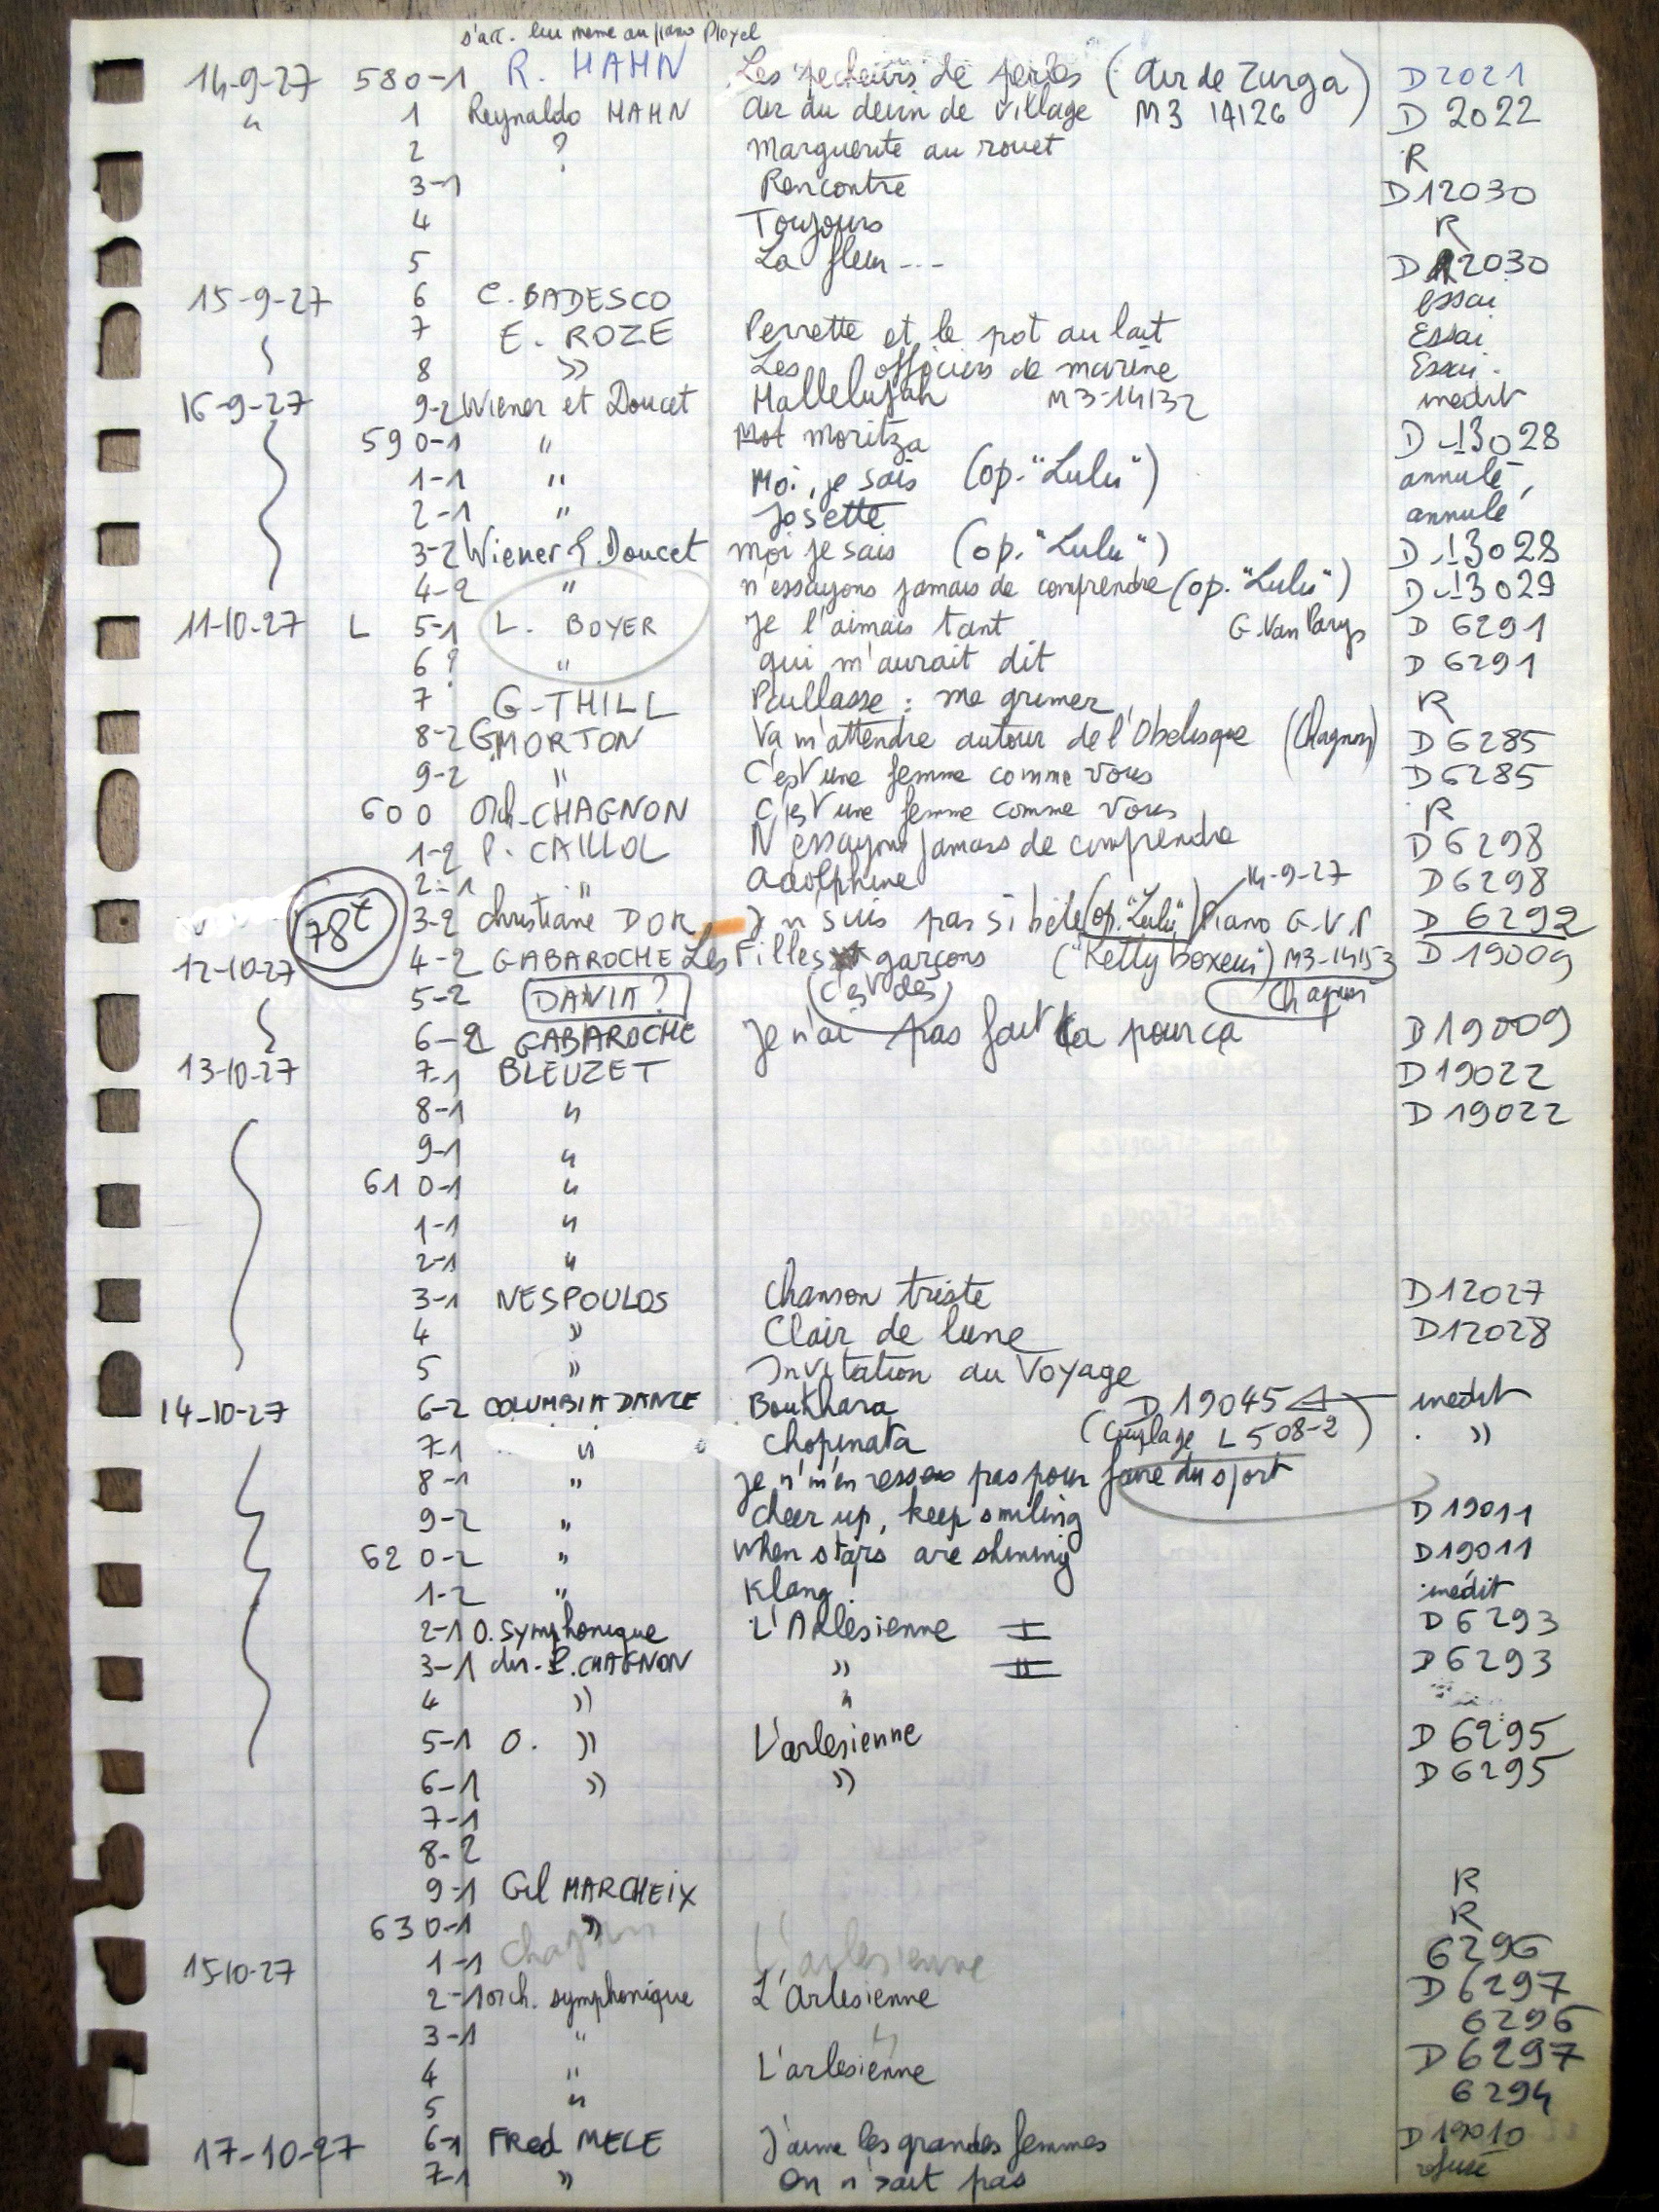 s'acc. lui meme au piano Pleyel
14-9-27 580-1 R. HAHN Les pecheurs de perles (air de Zurga) D 2021
" 1 Reynaldo HAHN air du devin de village M3 14126 D 2022
2 ? Marguerite au rouet R
3-1 Rencontre D12030
4 Toujours R
5 La fleur --- D 12030
15-9-27 6 C. BADESCO essai
7 E. ROZE Perrette et le pot au lait Essai
8 » Les officiers de marine Essai.
16-9-27 9-2 Wiener et Doucet Hallelujah M3-14132 inedit
590-1 " Mot moritza D-13028
1-1 " Moi, je sais (op. "Lulu") annulé
2-1 " Josette annulé
3-2 Wiener & Doucet moi je sais (op. "Lulu") D.13028
4-2 " n'essayons jamais de comprendre (op. "Lulu") D-13029
11-10-27 L 5-1 L. BOYER Je l'aimais tant G. Van Parys D 6291
6? " qui m'aurait dit D 6291
7 G-THILL Paillasse : me grimer R
8-2 G.MORTON Va m'attendre autour de l'Obelisque (Chagnon) D 6285
9-2 " C'est une femme comme vous D 6285
600 Orch-CHAGNON C'est une femme comme vous R
1-2 P. CAILLOL N'essayons jamais de comprendre D 6298
2-1 " adolphine 14-9-27 D6298
78t 3-2 christiane DOR J n suis pas si bête (op. "Lulu") Piano G.V.P D 6292
12-10-27 4-2 GABAROCHE Les Filles garçons ("Ketty boxeur") M3-14153 D 19009
5-2 DAVIA? (c'est des) Chagnon
6-2 GABAROCHE Je n'ai pas fait ça pour ça D19009
13-10-27 7-1 BLEUZET D19022
8-1 " D19022
9-1 "
610-1 "
1-1 "
2-1 "
3-1 NESPOULOS Chanson triste D12027
4 » Clair de lune D12028
5 » Invitation au Voyage
14-10-27 6-2 COLUMBIA DANCE Boukhara D 19045 inedit
7-1 " Chopinata (Couplage L 508-2) »
8-1 " Je n'm'en ressens pas pour faire du sport
9-2 " Cheer up, keep smiling D19011
620-2 " When stars are shining D19011
1-2 " Klang! inédit
2-1 O. Symphonique L'Arlesienne I D6293
3-1 dir. P. CHAGNON » II D6293
4 » "
5-1 O. » L'arlesienne D 6295
6-1 » » D6295
7-1
8-2
9-1 Gil MARCHEIX R
630-1 » R
15-10-27 1-1 Chagnon L'arlesienne 6296
2-1 orch. symphonique L'Arlesienne D6297
3-1 " " 6296
4 " L'arlesienne D6297
5 " 6294
17-10-27 6-1 Fred MELE J'aime les grandes femmes D19010
7-1 » On n'sait pas refusé